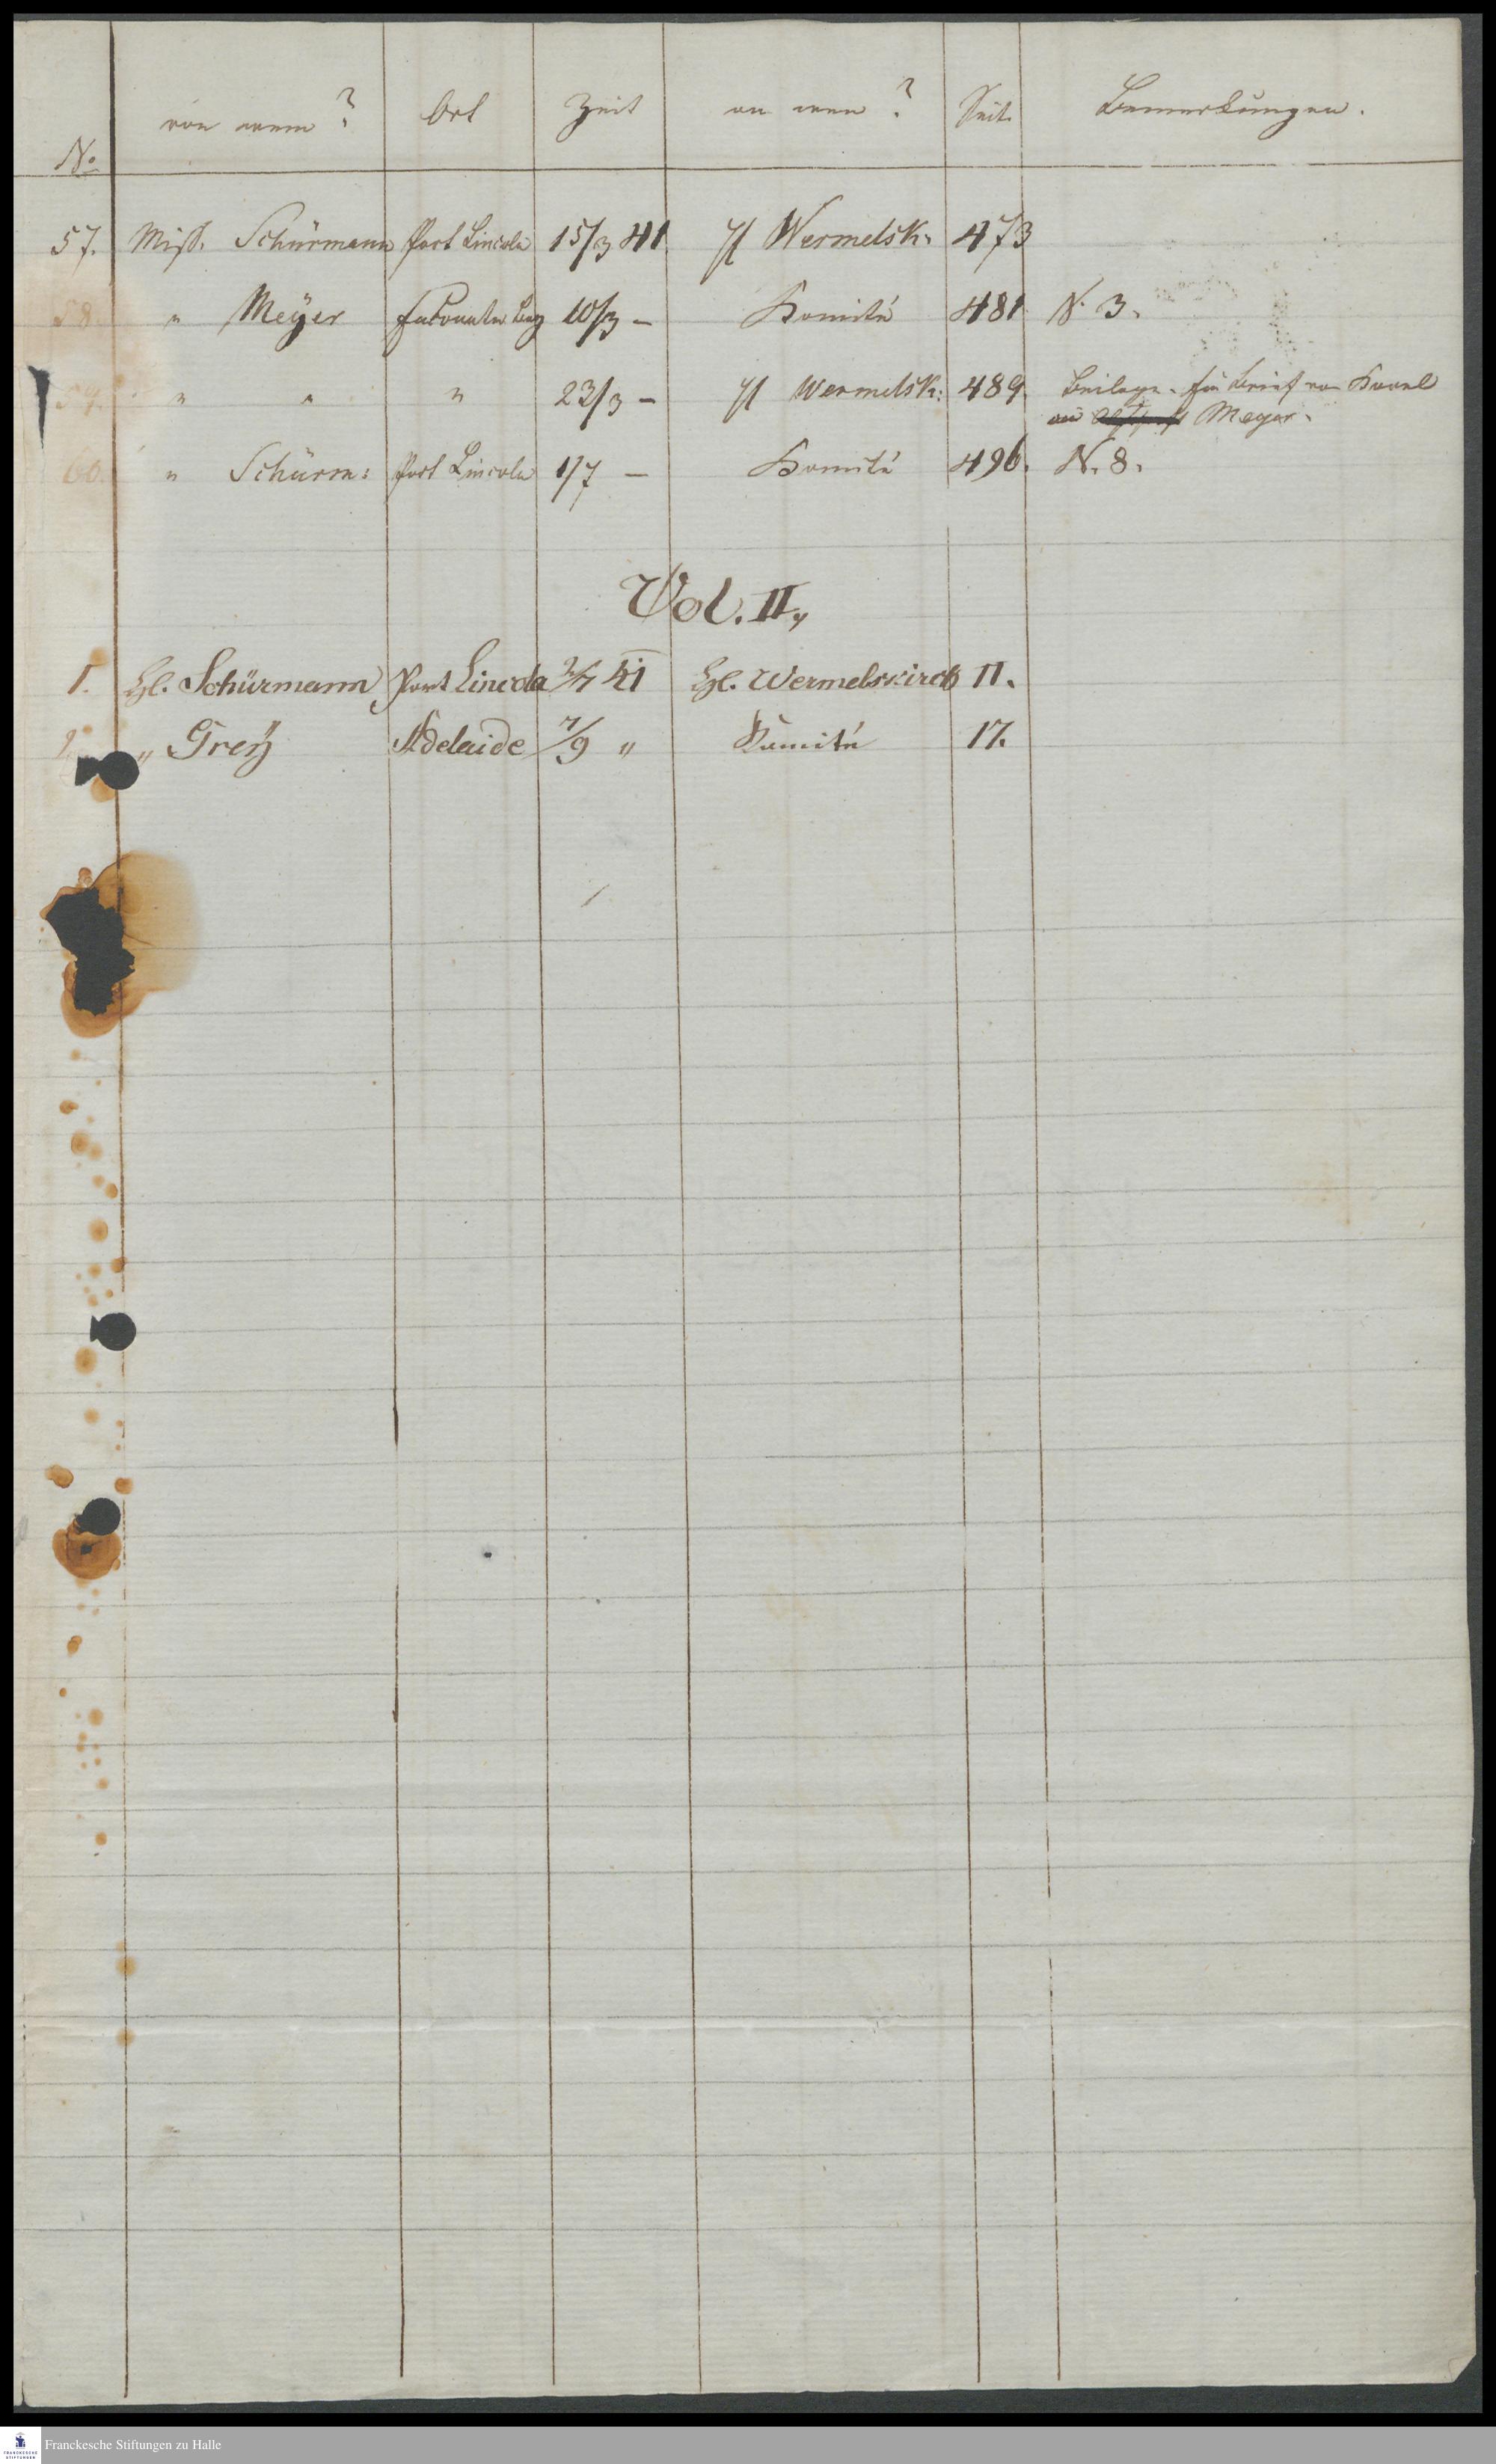 No. von wem? Ort Zeit an wen? Seite Bemerkungen.
57. Miss. Schürmann Port Lincoln 15/3 41. H Wermelsk. 473
58. " Meyer Encounter Bay 10/3 – Komité 481 N. 3.
59. " " " 23/3 – H Wermelsk: 489. Beilage. Ein Brief von
an Meyer.
60. " Schürm: Port Lincoln 1/7 – Komité 496. N. 8.
Vol. II,,
1. HE. Schürmann Port Lincoln 2/7 41 HE. Wermelskirch 11.
2. " Grey Adelaide 7/9 " Komité 17.
Franckesche Stiftungen zu Halle